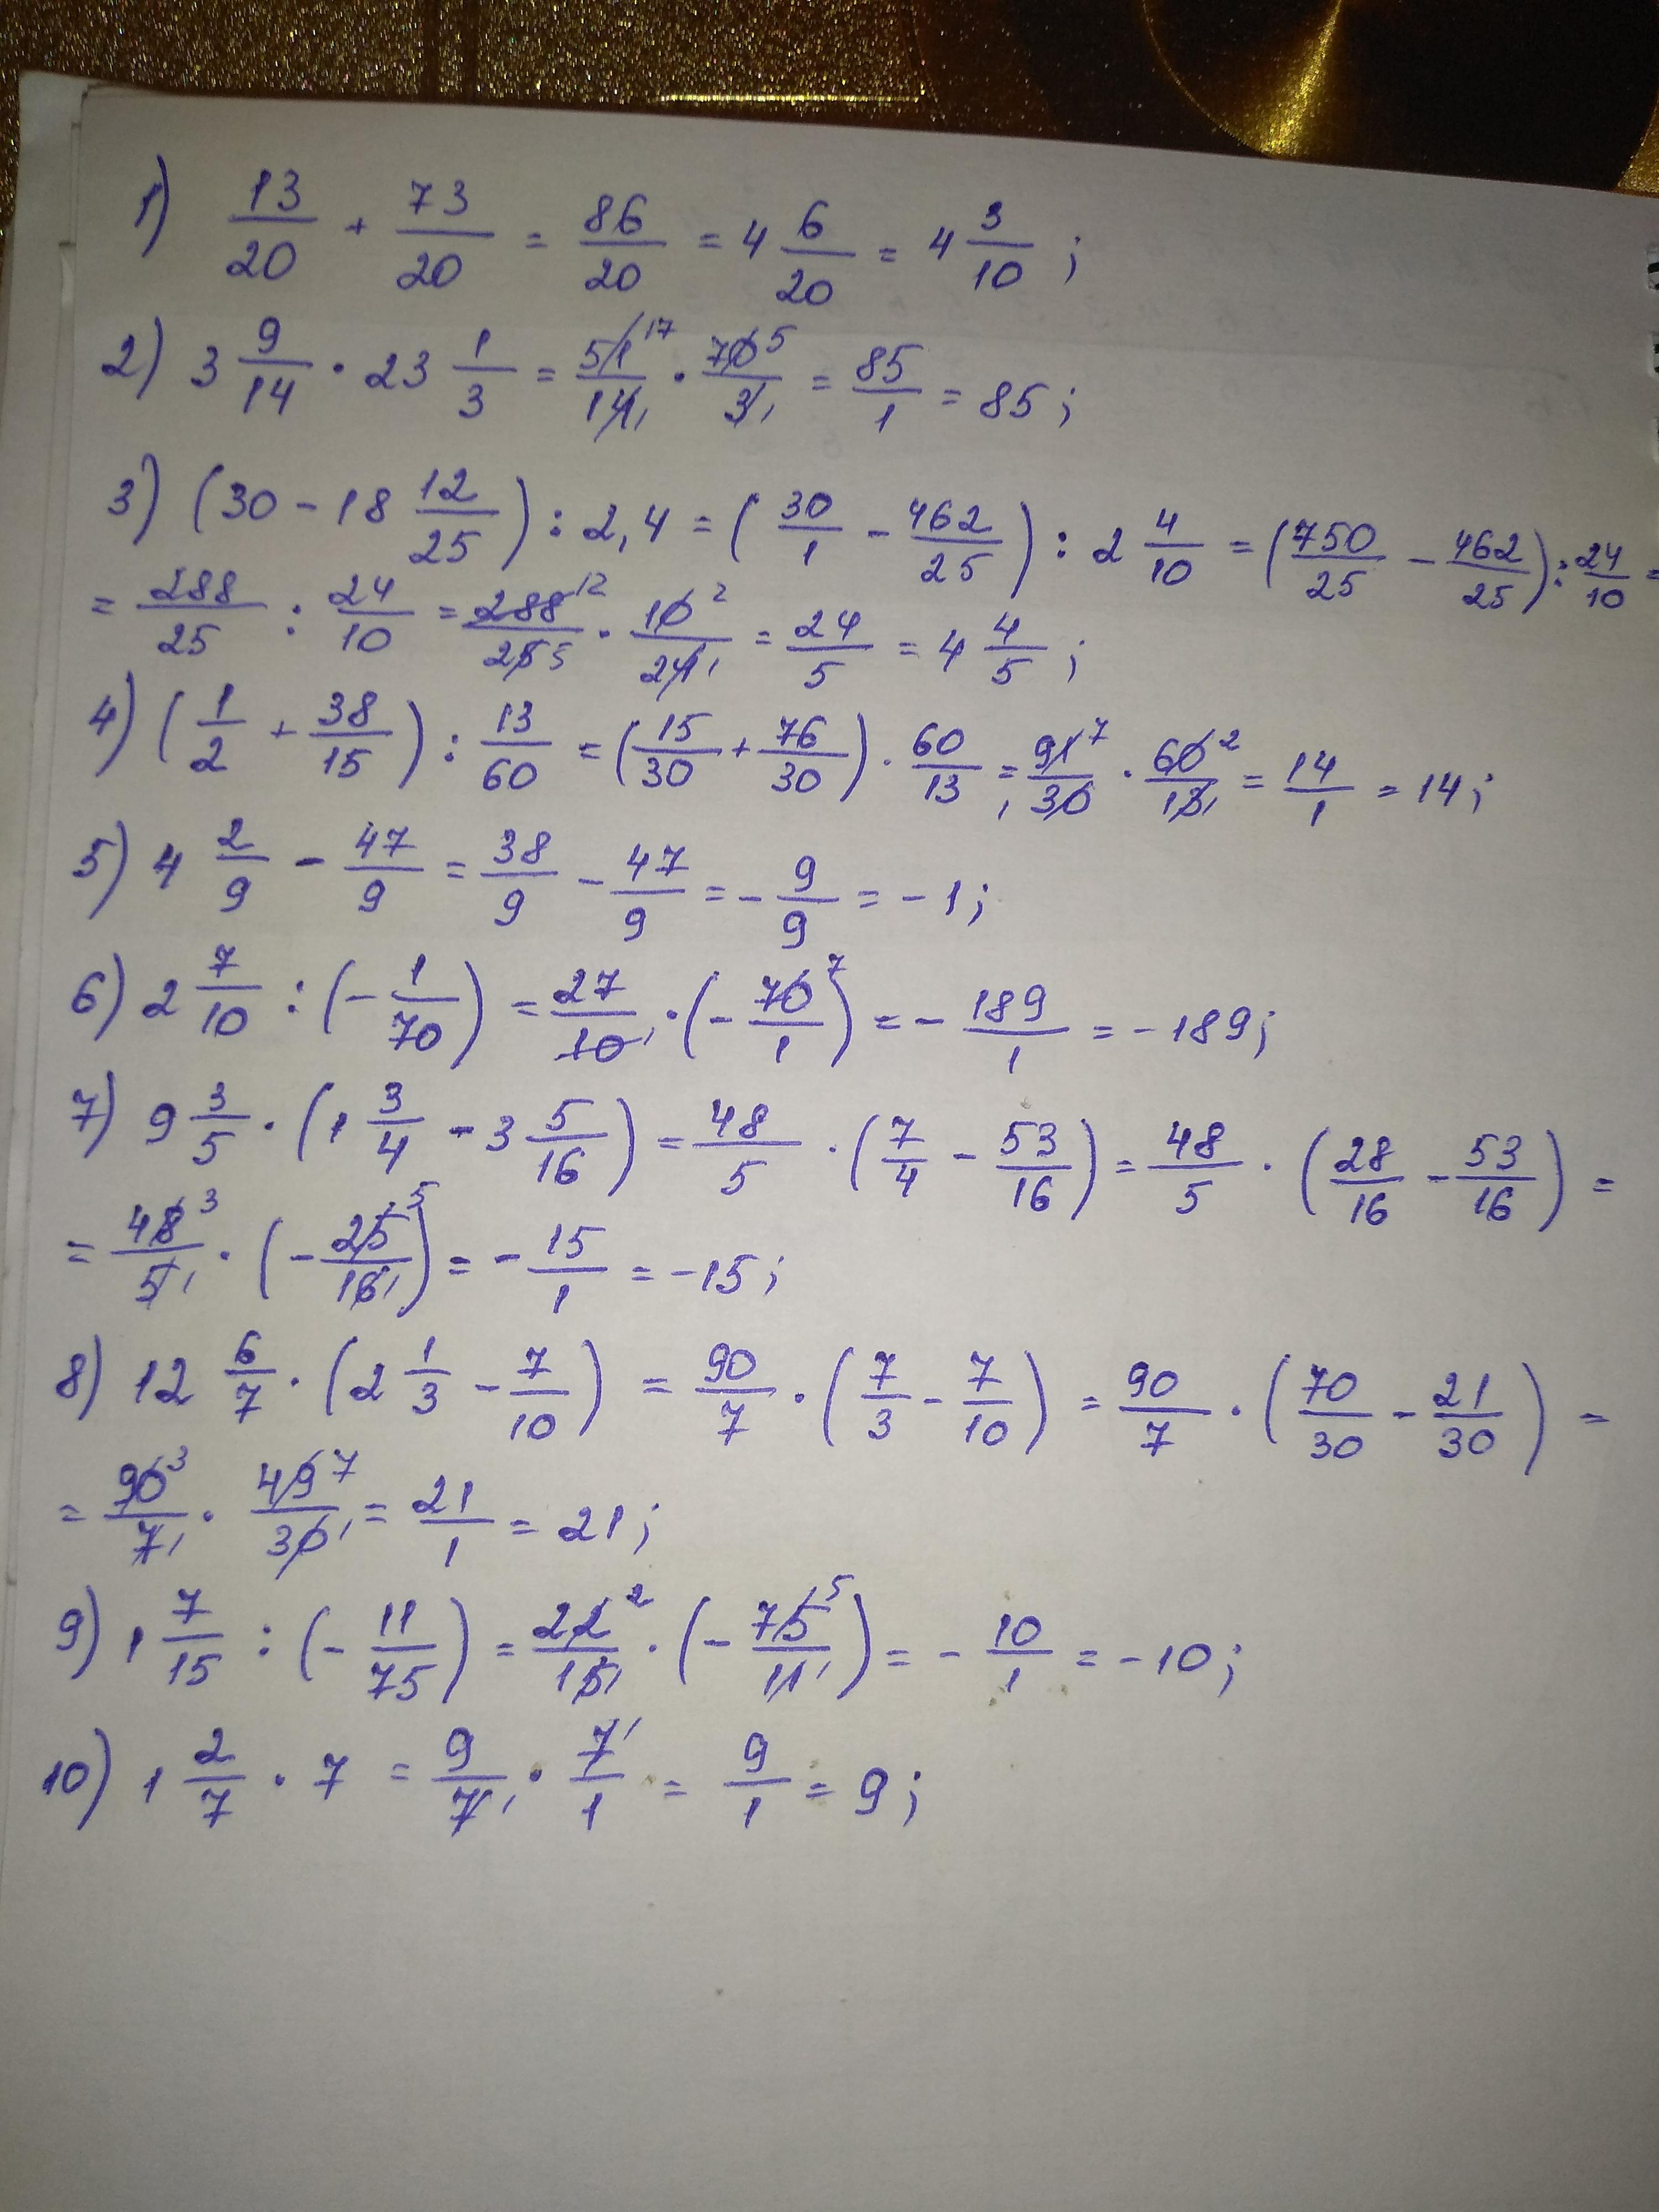 1) 13/20 + 73/20 = 86/20 = 4 6/20 = 4 3/10 ;
2) 3 9/14 · 23 1/3 = 51 17/14 1 · 70 5/3 1 = 85/1 = 85 ;
3) (30 - 18 12/25) : 2,4 = (30/1 - 462/25) : 2 4/10 = (750/25 - 462/25) : 24/10 =
= 288/25 : 24/10 = 288 12/25 5 · 10 2/24 1 = 24/5 = 4 4/5 ;
4) (1/2 + 38/15) : 13/60 = (15/30 + 76/30) · 60/13 = 91 7/1 30 · 60 2/13 1 = 14/1 = 14 ;
5) 4 2/9 - 47/9 = 38/9 - 47/9 = - 9/9 = - 1 ;
6) 2 7/10 : (- 1/70) = 27/10 1 · (- 70 7/1) = - 189/1 = - 189 ;
7) 9 3/5 · (1 3/4 - 3 5/16) = 48/5 · (7/4 - 53/16) = 48/5 · (28/16 - 53/16) =
= 48 3/5 1 · (- 25 5/16 1) = - 15/1 = - 15 ;
8) 12 6/7 · (2 1/3 - 7/10) = 90/7 · (7/3 - 7/10) = 90/7 · (70/30 - 21/30) =
= 90 3/7 1 · 49 7/30 1 = 21/1 = 21 ;
9) 1 7/15 : (- 11/75) = 22 2/15 1 · (- 75 5/11 1) = - 10/1 = - 10 ;
10) 1 2/7 · 7 = 9/7 1 · 7 1/1 = 9/1 = 9 ;